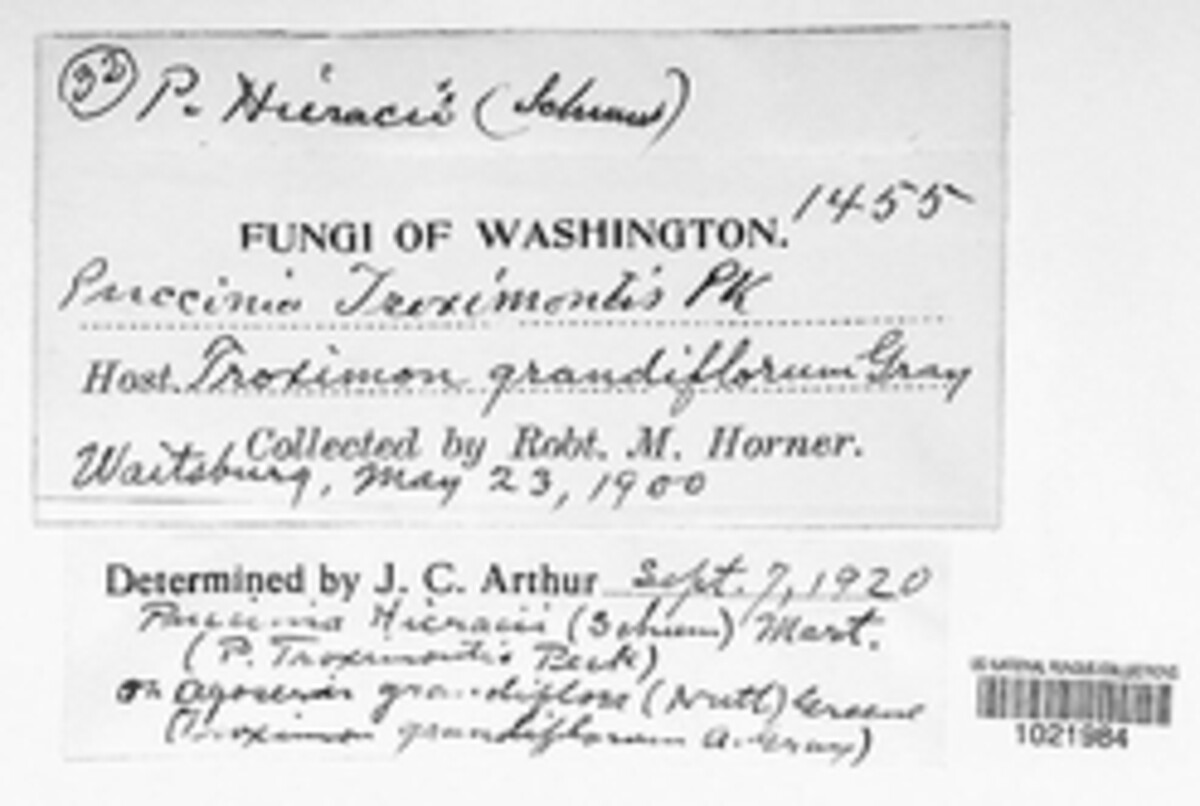 32 P. Hieracii (Schum)
1455
FUNGI OF WASHINGTON.
Puccinia Troximontis PK
Host. Troximon grandiflorum Gray
Collected by Robt. M. Horner.
Waitsburg, May 23, 1900
Determined by J. C. Arthur Sept. 7, 1920
Puccinia Hieracii (Schum) Mart.
(P. Troximontis Peck)
on Agoseris grandiflora (Nutt) Greene
(Troximon grandiflorum A. Gray)
US NATIONAL FUNGUS COLLECTIONS
1021984